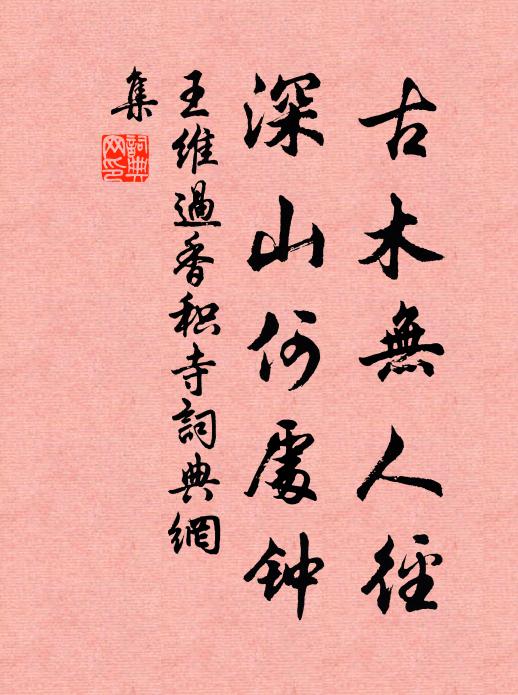 古木無人徑
深山何處钟
王維過香积寺詞典網
集
詞典
网印